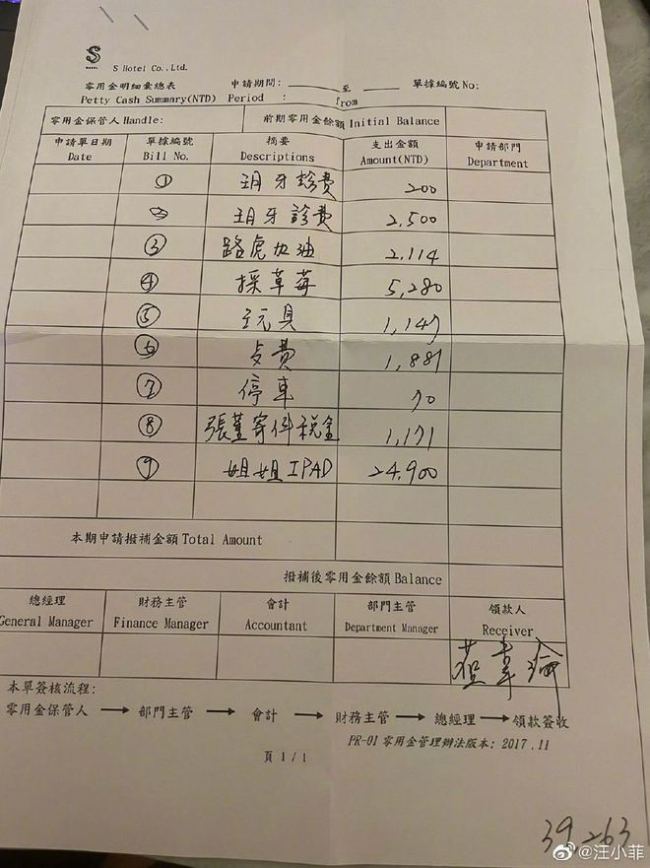 S
S Hotel Co.,Ltd.
零用金明細彙總表 申請期間: 至 單據編號No:
Petty Cash Summary(NTD) Period : from
零用金保管人Handle: 前期零用金餘額Initial Balance
申請單日期 單據編號 摘要 支出金額 申請部門
Date Bill No. Descriptions Amount(NTD) Department
① 玥牙診費 200
② 玥牙診費 2,500
③ 路虎加油 2,114
④ 採草莓 5,280
⑤ 玩具 1,147
⑥ 費 1,881
⑦ 停車 70
⑧ 張董寄件稅金 1,171
⑨ 姐姐IPAD 24,900
本期申請撥補金額Total Amount
撥補後零用金餘額Balance
總經理 財務主管 會計 部門主管 領款人
General Manager Finance Manager Accountant Department Manager Receiver
本單簽核流程:
零用金保管人 → 部門主管 → 會計 → 財務主管 → 總經理 → 領款簽收
PR-01 零用金管理辦法版本: 2017.11
頁 1/1
39,263
@汪小菲